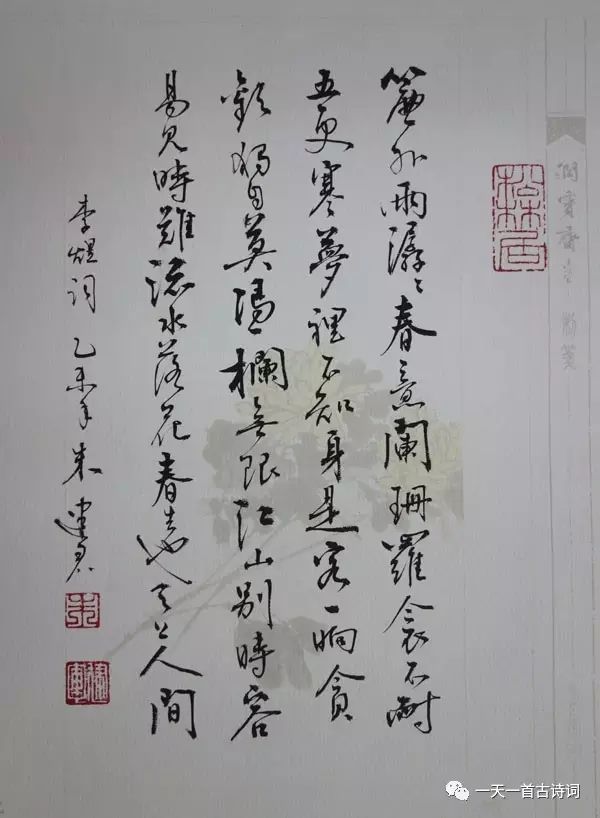 松林居
簾外雨潺〻春意闌珊羅衾不耐
五更寒夢裡不知身是客一晌貪
歡獨自莫憑欄無限江山別時容
易見時難流水落花春去也天上人間
李煜詞 乙未年 朱建
朱
一天一首古诗词